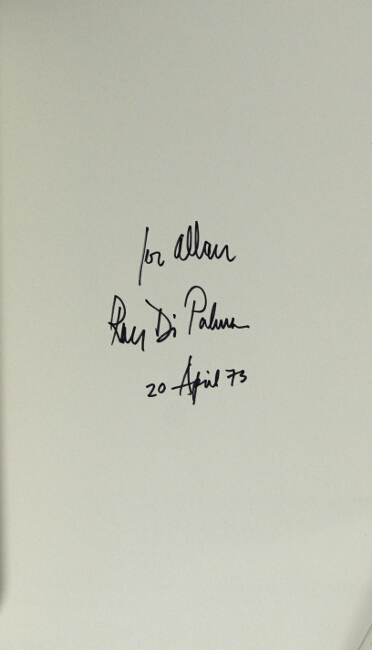 for Allan
Ray Di Palma
20 April 73